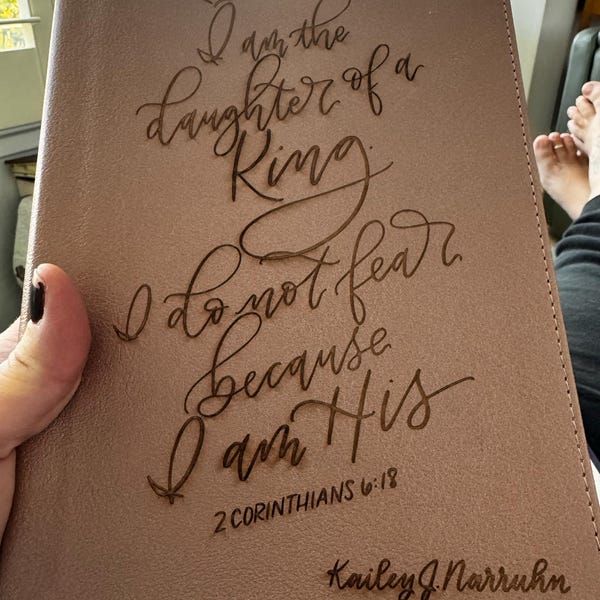 I am the
daughter of a
King.
I do not fear
because
I am His
2 CORINTHIANS 6:18
Kailey J. Narruhn